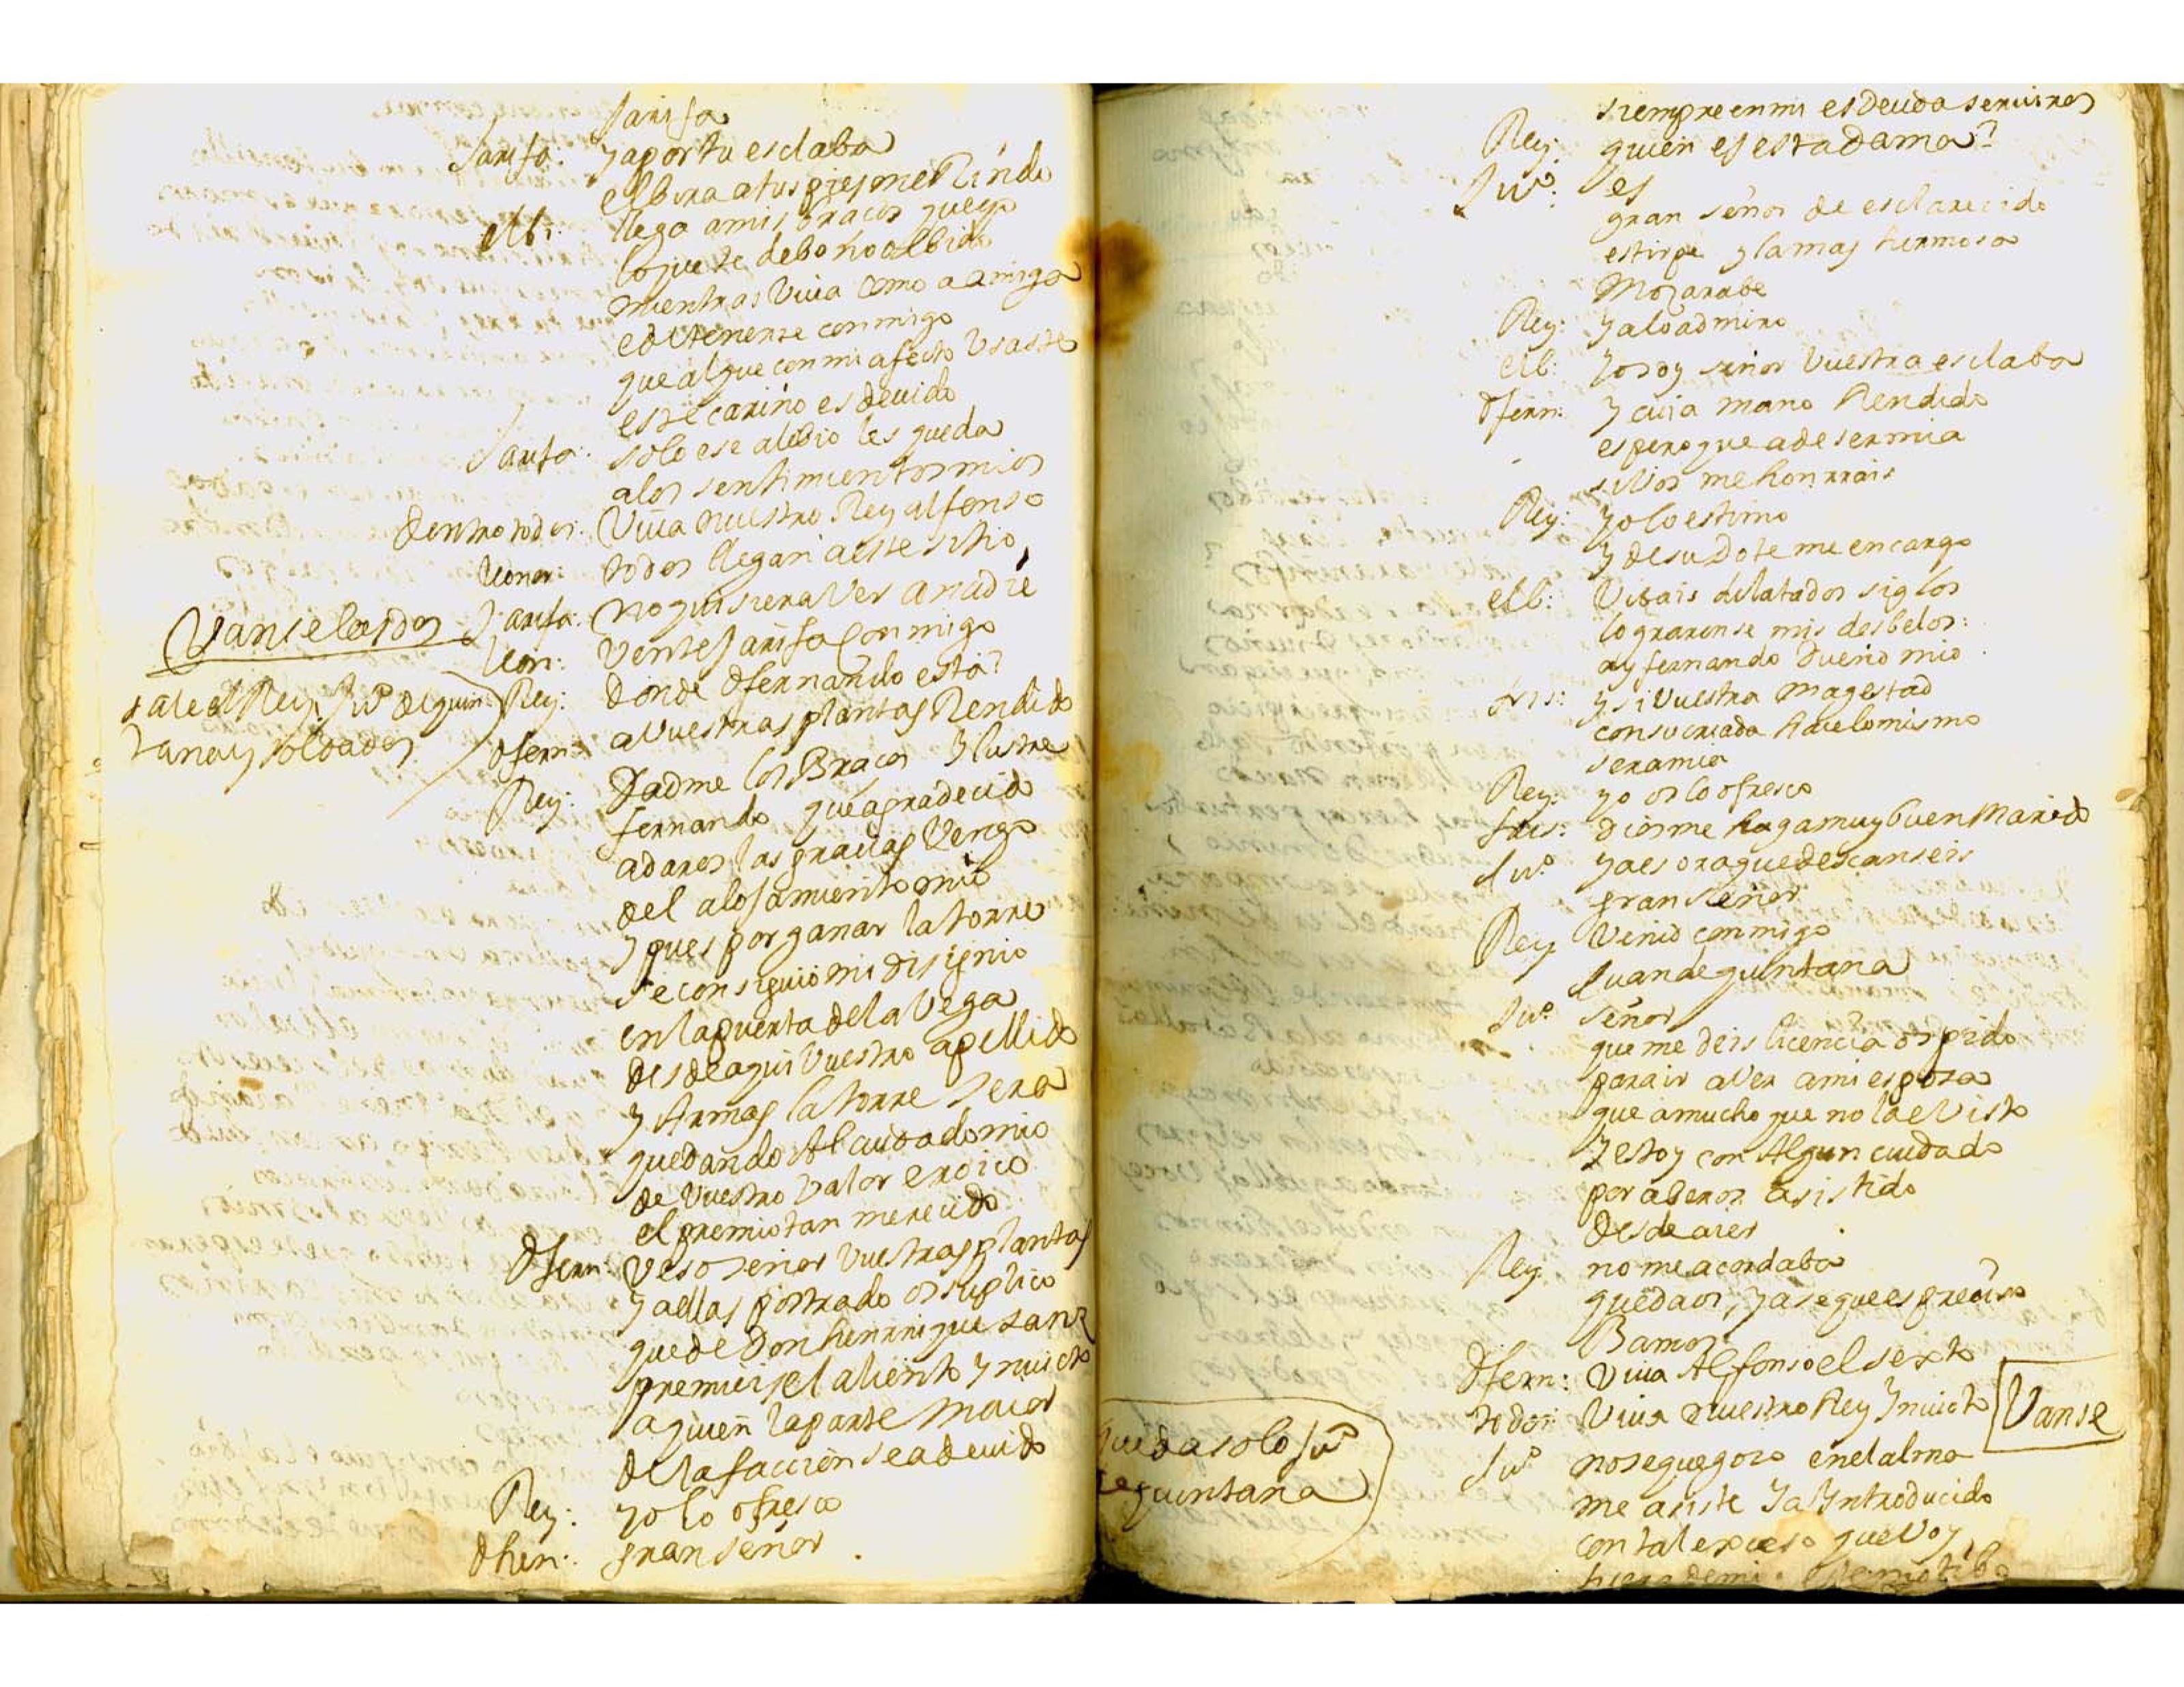 Jarifa
Jarifa: ya por tu esclaba
elbira a tus pies me Rindo
elbi: llega a mis braços que yo
lo que te debo no olbido
mientras viua como a amiga
e de tenerte conmigo
que al que con mi afecto vsaste
este cariño es deuido
Jarifa: solo ese alibio les queda
a los sentimientos mios
Dentro todos: Viua nuestro Rey alfonso
Leonor: todos llegan a este sitio
Jarifa: no quisiera Ver a nadie
Vanse las dos
Leon: Vente Jarifa Conmigo
sale el Rey, Juº de quin
tana y soldados
Rey: donde Dfernando està?
Dfern: a Vuestras plantas Rendido
Rey: Dadme los Braços Ylustre
fernando que agradecido
a daros las gracias Vengo
del alojamiento mio
y pues por ganar la torre
se consiguio mi disignio
en la puerta de la Vega
desde aqui Vuestro apellido
y Armas la torre sera
quedando Al cuidado mio
de Vuestro Valor eroico
el premio tan merecido
Dfern: Veso señor Vuestras plantas
y a ellas postrado os suplico
quede Don henrrique sanz
premieis el aliento ynuicto
a quien la parte maior
de la faccion sea deuido
Rey: yo lo ofresco
Dhen: gran señor
siempre en mi es deuda seruiros
Rey: quien es esta dama?
Juº: es
gran señor de esclarecido
estirpe y la mas hermosa
Mozarabe
Rey: ya lo admiro
elb: yo soy señor Vuestra esclaba
Dfern: y cuia mano Rendido
espero que a de ser mia
si Vos me honrrais
Rey: yo lo estimo
y de su Dote me encargo
elb: Vibais dilatados siglos
lograronse mis desbelos:
ay fernando dueño mio
y si Vuestra Magestad
con su criada haze lo mismo
sera mia
Rey: yo os lo ofresco
Dios me haga muy buen Marido
Juº ya es ora que descanseis
gran señor
Rey Venid conmigo
Juan de quintana
Juº señor
que me deis licencia os pido
para ir a Ver a mi esposa
que a mucho que no la e Visto
y estoy con Algun cuidado
por aberos asistido
desde aier
Rey no me acordaba
quedaos, ya se que es preciso
Bamos
Dfern: Viua Alfonso el sexto
todos: Viua nuestro Rey Ynuicto
Vanse
queda solo Juº
de quintana
Juº no se que gozo en el alma
me asiste ya Yntroducido
con tal exceso que Voy
fuera de mi